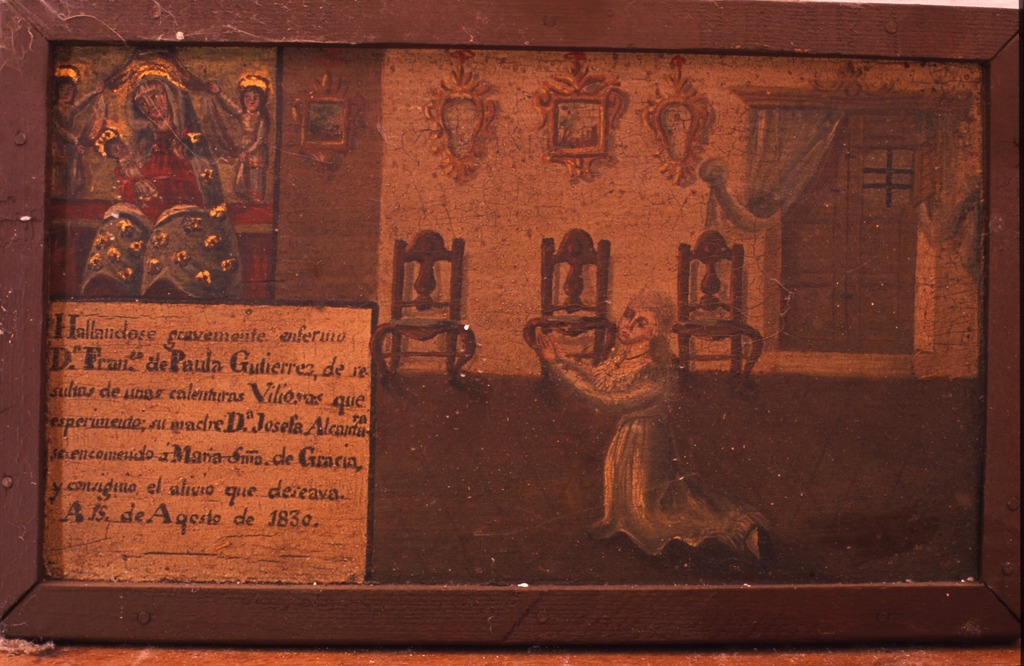 Hallandose gravemente enfermo
D.ª Fran.ca de Paula Gutierrez, de re
sultas de unas calenturas Viliosas que
esperimento; su madre D.ª Josefa Alcanta.ra
se encomendo a Maria Sma. de Gracia,
y consiguio el alivio que deseava.
A 15. de Agosto de 1830.